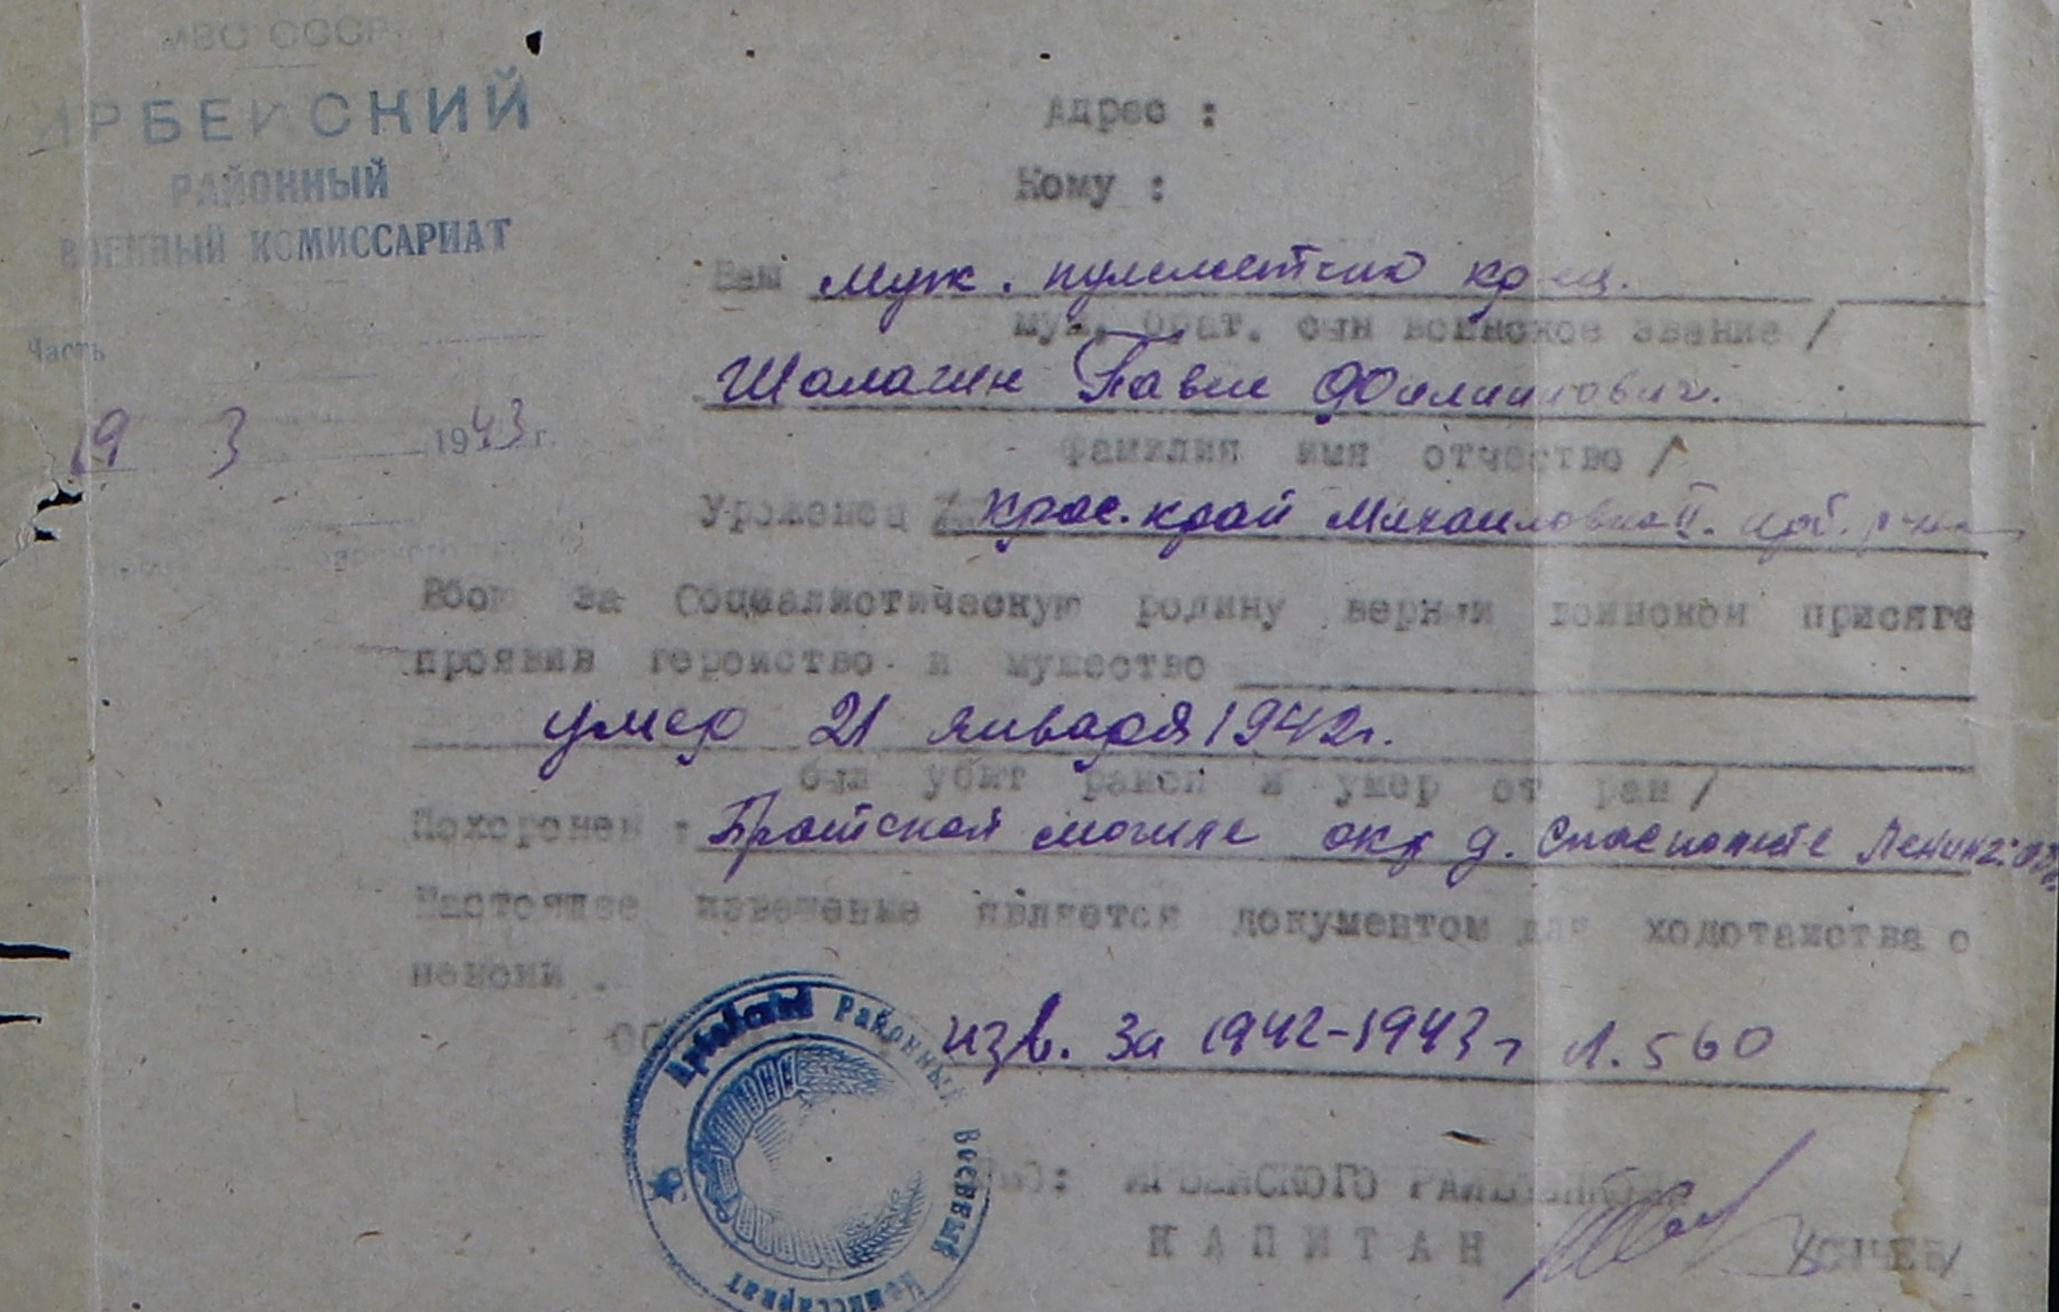 МВС СССР
ИРБЕЙСКИЙ
РАЙОННЫЙ
ВОЕННЫЙ КОМИССАРИАТ
Часть
19 3 1943 г.
Адрес :
Кому :
Ваш муж. пулеметчик
муж, брат. сын воинское звание /
Шалагин Павел Филиппович.
фамилия имя отчество /
Уроженец Крас. край Михайловка II. ирб. р-на
Вбою за Социалистическую родину верный воинской присяге
проявив геройство и мужество
умер 21 января 1942г.
был убит ранен и умер от ран /
Похоронен : Братской могиле окр д. Спасполисте Ленинг. обл.
Настоящее извещение является документом для ходотайства о
пенсии .
изв. за 1942-1943 г л. 560
Ирбейский Районный Военный Комиссариат
ИРБЕЙСКОГО РАЙВОЕНКОМА
КАПИТАН